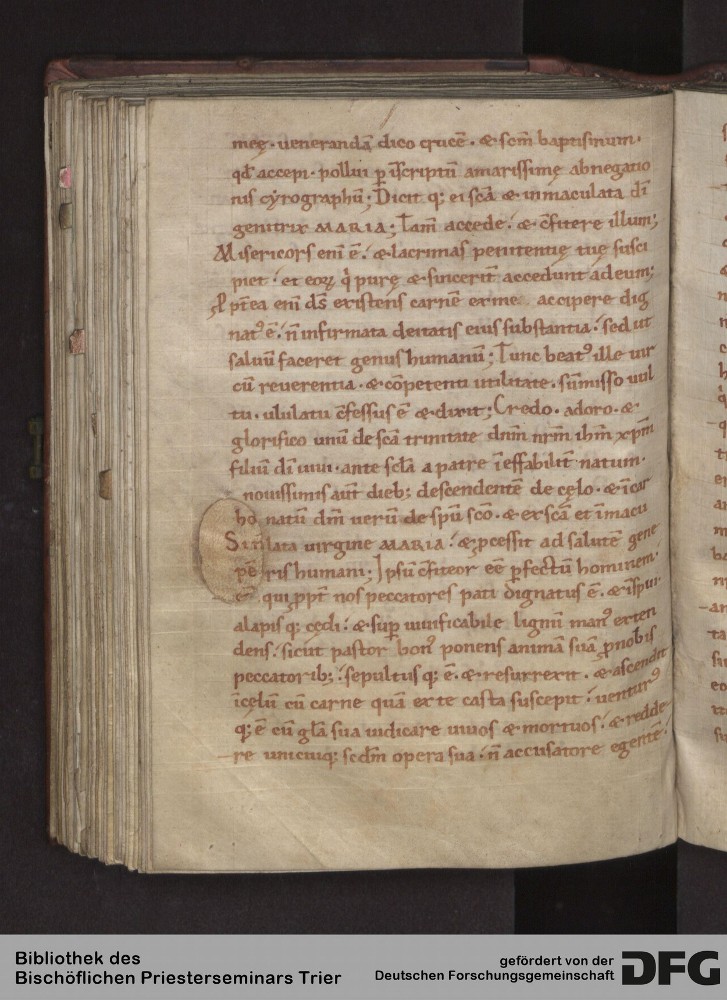 meę · uenerandā dico crucē · & scm̄ baptismum ·
qd̄ accepi · pollui ꝑ īscriptū amarissimę abnegatio
nis cyrographū; Dicit q; ei scā & inmaculata dī
genitrix MARIA; Iam accede · & c̄fitere illum;
Misericors eni ē · & lacrimas penitentię tuę susci
piet · et eoꝝ q̇ purę & sincerit̄ accedunt ad eum;
pt̄ea eni d̄s existens carnē ex me accipere dig
natꝰ ē · n̄ infirmata deitatis eius substantia · sed ut
saluū faceret genus humanū; Tunc beatꝰ ille uir
cū reuerentia · & cōpetenti utilitate · sūmisso uul
tu · ululatu c̄fessus ē & dixit; Credo · adoro · &
glorifico unū de scā trinitate dnm̄ nrm̄ ihm̄ xpm̄
filiū dī uiui · ante scla a patre īeffabilit̄ natum ·
nouissimis aut̄ dieb; descendentē de cęlo · & īcar
natū dm̄ uerū de spū scō · & ex scā et īmacu
lata uirgine MARIA · & ꝓcessit ad salutē gene
ris humani; Ipsū c̄fiteor eē ꝑfectū hominem ·
qui ꝓpt̄ nos peccatores pati dignatus ē · & īspui ·
alapis q; cędi · & sup̄ uiuificabile lignū manꝰ exten
dens · sicut pastor bonꝰ ponens animā suā ꝓ nobis
peccatorib; · sepultus q; ē · & resurrexit · & ascendit
ī cęlū cū carne quā ex te casta suscepit · uenturꝰ
q; ē cū glā sua iudicare uiuos & mortuos · & redde
re unicuiq; scdm̄ opera sua · n̄ accusatore egentē ·
Bibliothek des
Bischöflichen Priesterseminars Trier
gefördert von der
Deutschen Forschungsgemeinschaft
DFG